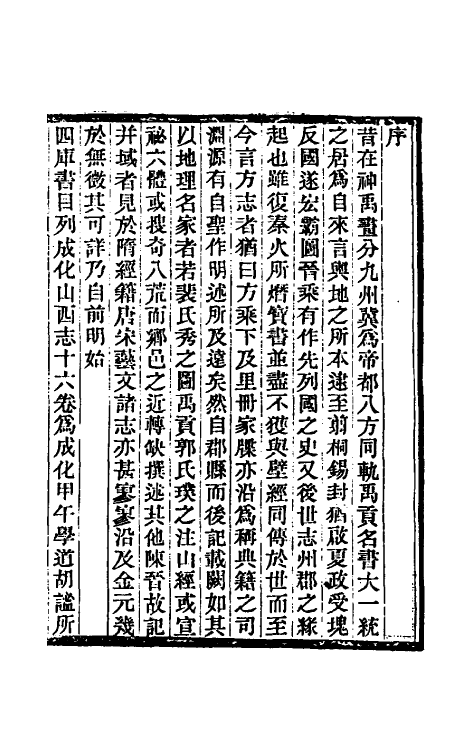 序
昔在神禹畫分九州冀爲帝都八方同軌禹貢名書大一統
之居爲自來言輿地之所本逮至剪桐錫封猶啟夏政受塊
反國遂宏霸圖晉乘有作先列國之史又後世志州郡之緣
起也雖復秦火所燔寶書並盡不獲與壁經同傳於世而至
今言方志者猶曰方乘下及里冊家牒亦沿爲稱典籍之司
淵源有自聖作明述所及遠矣然自郡縣而後記載闕如其
以地理名家者若裴氏秀之圖禹貢郭氏璞之注山經或宣
祕六體或搜奇八荒而鄉邑之近轉缺撰述其他陳晉故記
并域者見於隋經籍唐宋藝文諸志亦甚寥寥沿及金元幾
於無徵其可詳乃自前明始
四庫書目列成化山西志十六卷爲成化甲午學道胡謐所